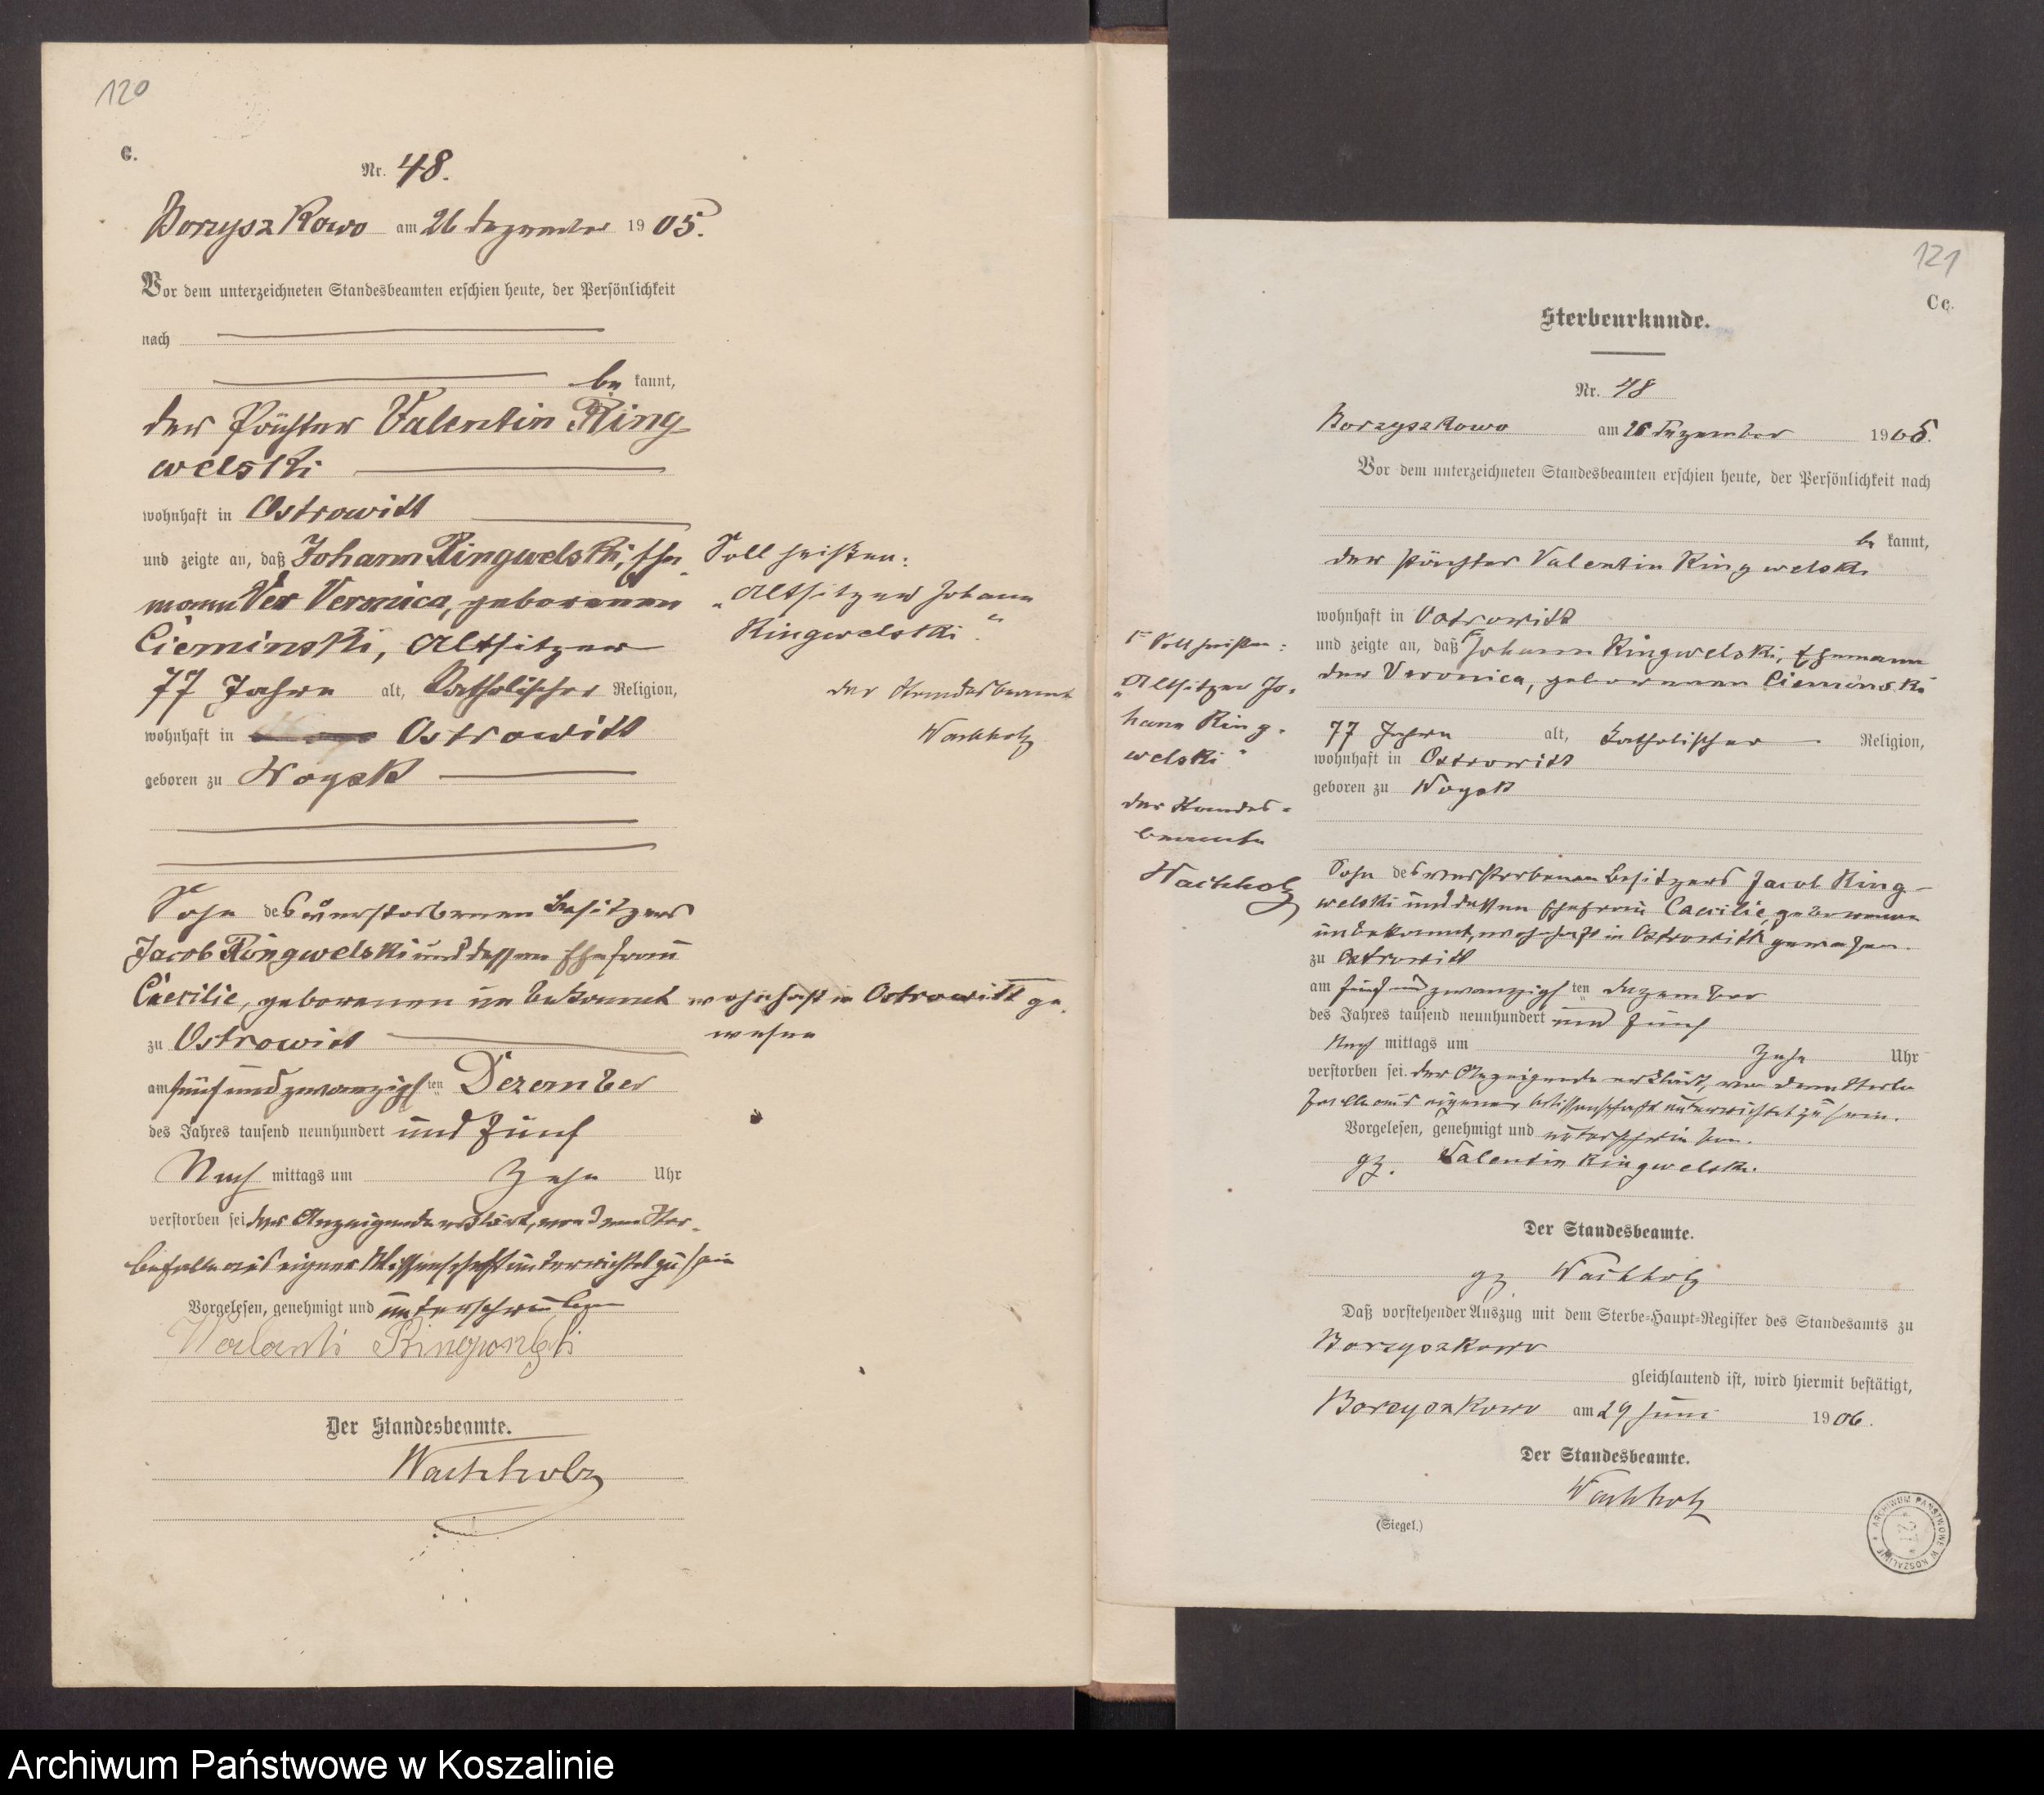 120
C.
Nr. 48.
Borzyszkowo am 26 Dezember 1905.
Vor dem unterzeichneten Standesbeamten erschien heute, der Persönlichkeit
nach
be kannt,
der Pächter Valentin Ring
welski
wohnhaft in Ostrowitt
und zeigte an, daß Johann Ringwelski, Ehe
mann der Veronica, geborenen
Cieminski, Altsitzer
77 Jahre alt, katholischer Religion,
wohnhaft in Ostrowitt
geboren zu Woysk
Sohn des verstorbenen Besitzers
Jacob Ringwelski und dessen Ehefrau
Caecilie, geborenen unbekannt wohnhaft in Ostrowitt ge
wesen
zu Ostrowitt
am fünf und zwanzigsten Dezember
des Jahres tausend neunhundert und fünf
Nach mittags um Zehn Uhr
verstorben sei der Anzeigende erklärt, von dem Ster-
befalle aus eigner Wissenschaft unterrichtet zu sein
Vorgelesen, genehmigt und unterschrieben
Der Standesbeamte.
Wachholz
Soll heißen:
„Altsitzer Johann
Ringwelski“
der Standesbeamte
Wachholz
121
Cc.
Sterbeurkunde.
Nr. 48
Borzyszkowo am 26 Dezember 1905.
Vor dem unterzeichneten Standesbeamten erschien heute, der Persönlichkeit nach
be kannt,
der Pächter Valentin Ringwelski
wohnhaft in Ostrowitt
und zeigte an, daß Johann Ringwelski, Ehemann
der Veronica, geborenen Cieminski
77 Jahre alt, katholischer Religion,
wohnhaft in Ostrowitt
geboren zu Woysk
Sohn des verstorbenen Besitzers Jacob Ring-
welski und dessen Ehefrau Caecilie, geborenen
unbekannt, wohnhaft in Ostrowitt gewesen.
zu Ostrowitt
am fünf und zwanzigsten Dezember
des Jahres tausend neunhundert und fünf
Nach mittags um Zehn Uhr
verstorben sei. der Anzeigende erklärt, von dem Sterbe
falle aus eigener Wissenschaft unterrichtet zu sein.
Vorgelesen, genehmigt und unterschrieben.
gz. Valentin Ringwelski.
Der Standesbeamte.
gz Wachholz
Daß vorstehender Auszug mit dem Sterbe-Haupt-Register des Standesamts zu
Borzyszkowo
gleichlautend ist, wird hiermit bestätigt,
Borzyszkowo am 29 Juni 1906.
Der Standesbeamte.
Wachholz
(Siegel.)
Soll heißen:
„Altsitzer Jo-
hann Ring-
welski“
der Standes-
beamte
Wachholz
ARCHIWUM PAŃSTWOWE W KOSZALINIE
Archiwum Państwowe w Koszalinie